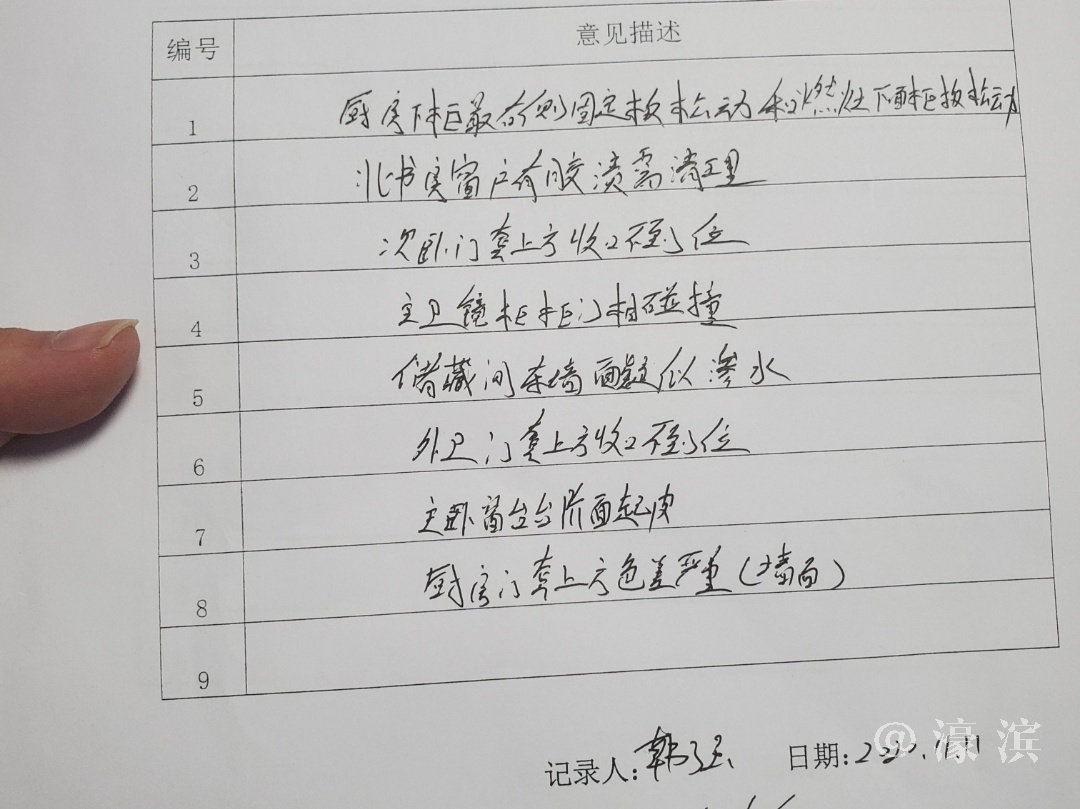 编号 意见描述
1 厨房下柜最右侧固定板松动和燃灶下面柜板松动
2 北书房窗户有胶渍需清理
3 次卧门套上方收口不到位
4 主卫镜柜柜门相碰撞
5 储藏间东墙面疑似渗水
6 外卫门套上方收口不到位
7 主卧窗台台阶面起皮
8 厨房门套上方色差严重(墙面)
9
记录人: 韩 日期:
@濠滨